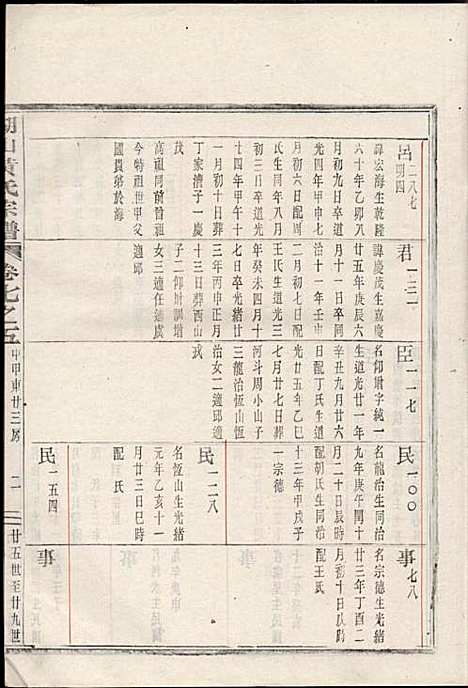 呂 二八七
明四
諱宏海生乾隆
六十年乙卯八
月初九日卒道
光四年甲申七
月初六日配周
氏生嘉慶
初三日卒道光
十四年甲午十
一月初四日葬
丁家漕子一慶
茂
高祖同前曾祖
今特祖世甲父
國貴弟於海
君 一三一
諱慶茂生嘉慶
廿五年庚辰六
月十一日卒同
治十一年壬申
二月初七日配
王氏生道光三
年癸未四月十
七日卒光緒廿
二年丙申正月
十三日葬酉山
子二仰墹訓增
女三適任適虞
適邱
臣 一一七
名仰墹字純一
生道光廿一年
辛丑九月廿六
日配丁氏生道
光廿五年乙巳
七月廿七日葬
河斗周小山子
三龍治恆山恆
治女二適邱適
戎
民 一〇〇
名龍治生同治
九年庚午閏十
月二十日辰時
配胡氏生同治
十三年甲戌子
一宗德
民 一二八
名恆山生光緒
元年乙亥十一
月廿三日巳時
配 氏
民 一五四
事 七八
名宗德生光緒
廿三年丁酉二
月初十日戌時
配王氏
事
事
黃氏宗譜
卷七之五
中甲東廿三房
二
廿五世至廿九世